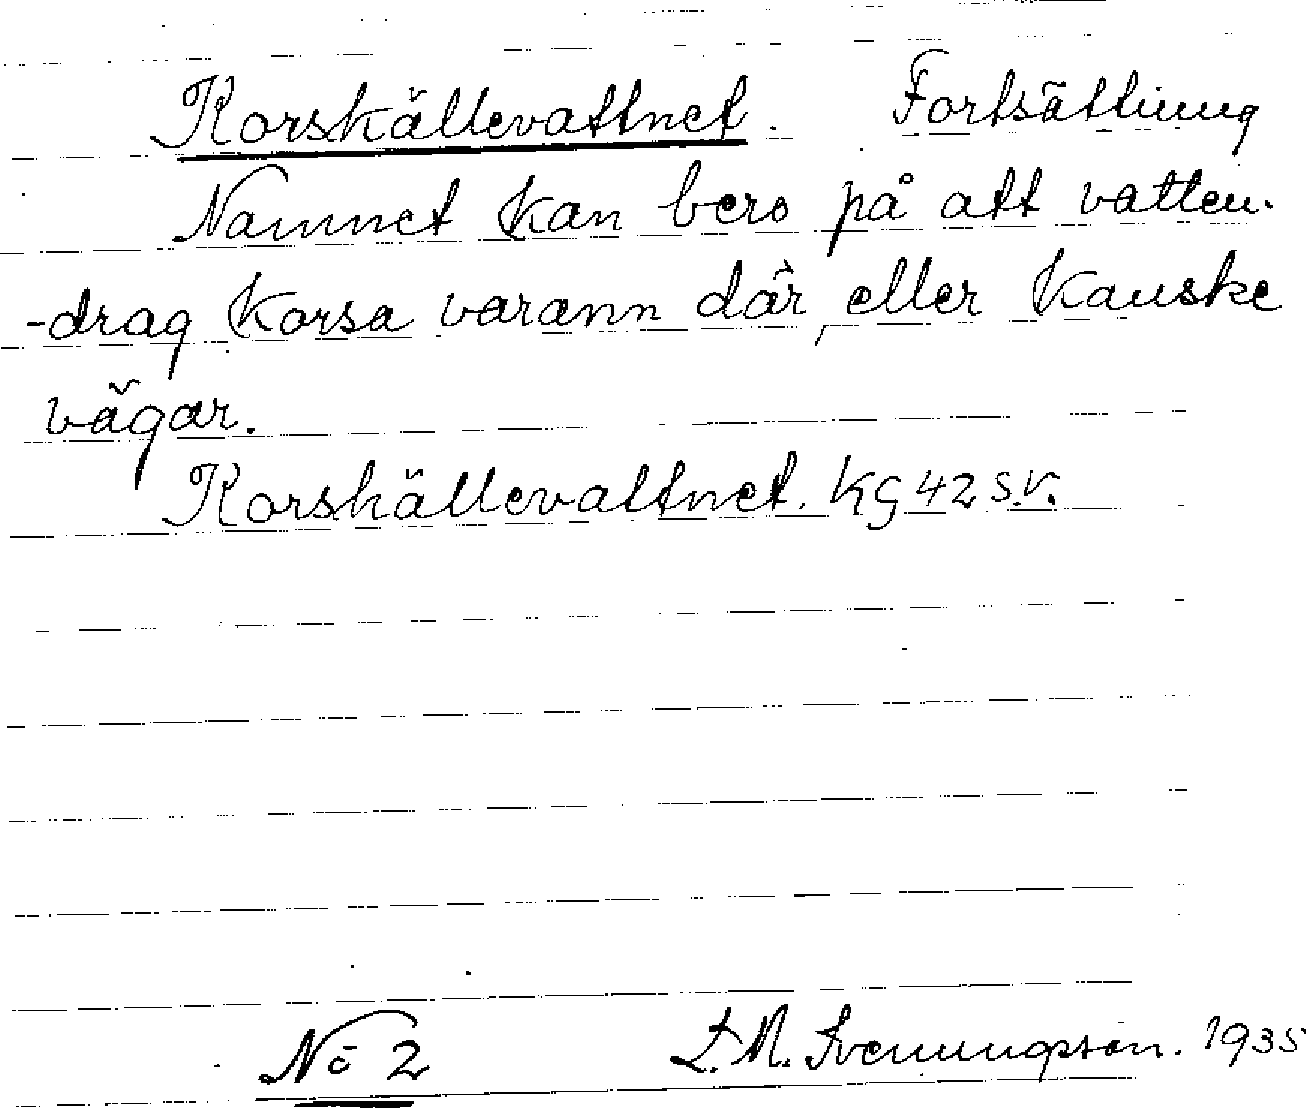 Korskällevattnet. Fortsättning
Namnet kan bero på att vatten-
-drag korsa varann där, eller kanske
vägar.
Korskällevattnet. KG 42 S.V.
No 2 L.M. Svenungson. 1935